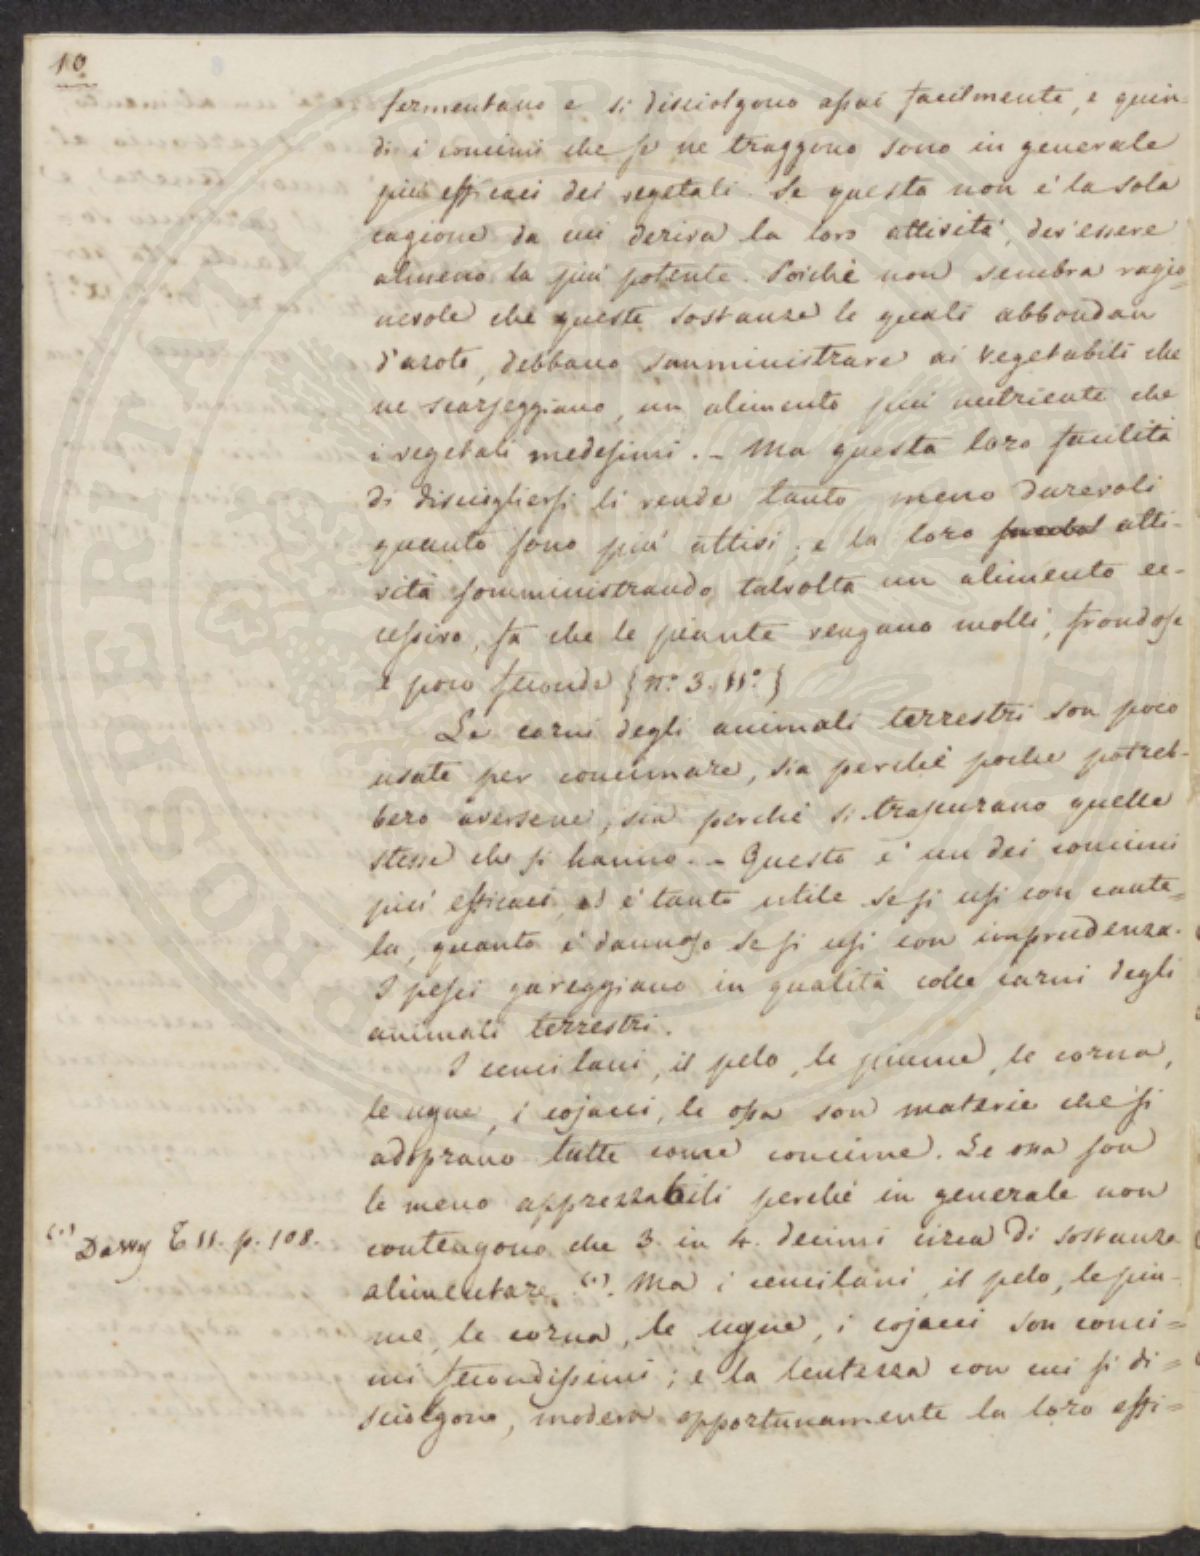 10
fermentano e si disciolgono assai facilmente, e quin-
di i concimi che si ne traggono sono in generale
più efficaci dei vegetali. Se questa non è la sola
cagione da cui deriva la loro attività, dev'essere
almeno la più potente. Poichè non sembra ragio=
nevole che queste sostanze le quali abbondan
d'azoto, debbano somministrare ai vegetabili che
ne scarseggiano, un alimento più nutriente che
i vegetali medesimi. – Ma questa loro facilità
di disciogliersi li rende tanto meno durevoli
quanto sono più attivi; e la loro atti-
vità somministrando talvolta un alimento ec-
cessivo, fa che le piante vengano molli, frondose
e poco feconde {n.° 3. 11.°}
Le carni degli animali terrestri son poco
usate per concimare, sia perchè poche potreb-
bero aversene, sia perchè si trascurano quelle
stesse che si hanno. – Questo è un dei concimi
più efficaci, ed è tanto utile se si usi con caute=
la, quanto è dannoso se si usi con imprudenza.
I pesci gareggiano in qualità colle carni degli
animali terrestri.
I cenci lani, il pelo, le piume, le corna,
le ugne, i cojacci, le ossa son materie che si
adoprano tutte come concime. Le ossa son
le meno apprezzabili perchè in generale non
contengono che 3. in 4. decimi circa di sostanza
alimentare (1). Ma i cenci lani, il pelo, le piu-
me, le corna, le ugne, i cojacci son conci=
mi fecondissimi; e la lentezza con cui si di=
sciolgono, modera opportunamente la loro effi=
(1) Dawy T. 11. p. 108.
PROSPERITAS